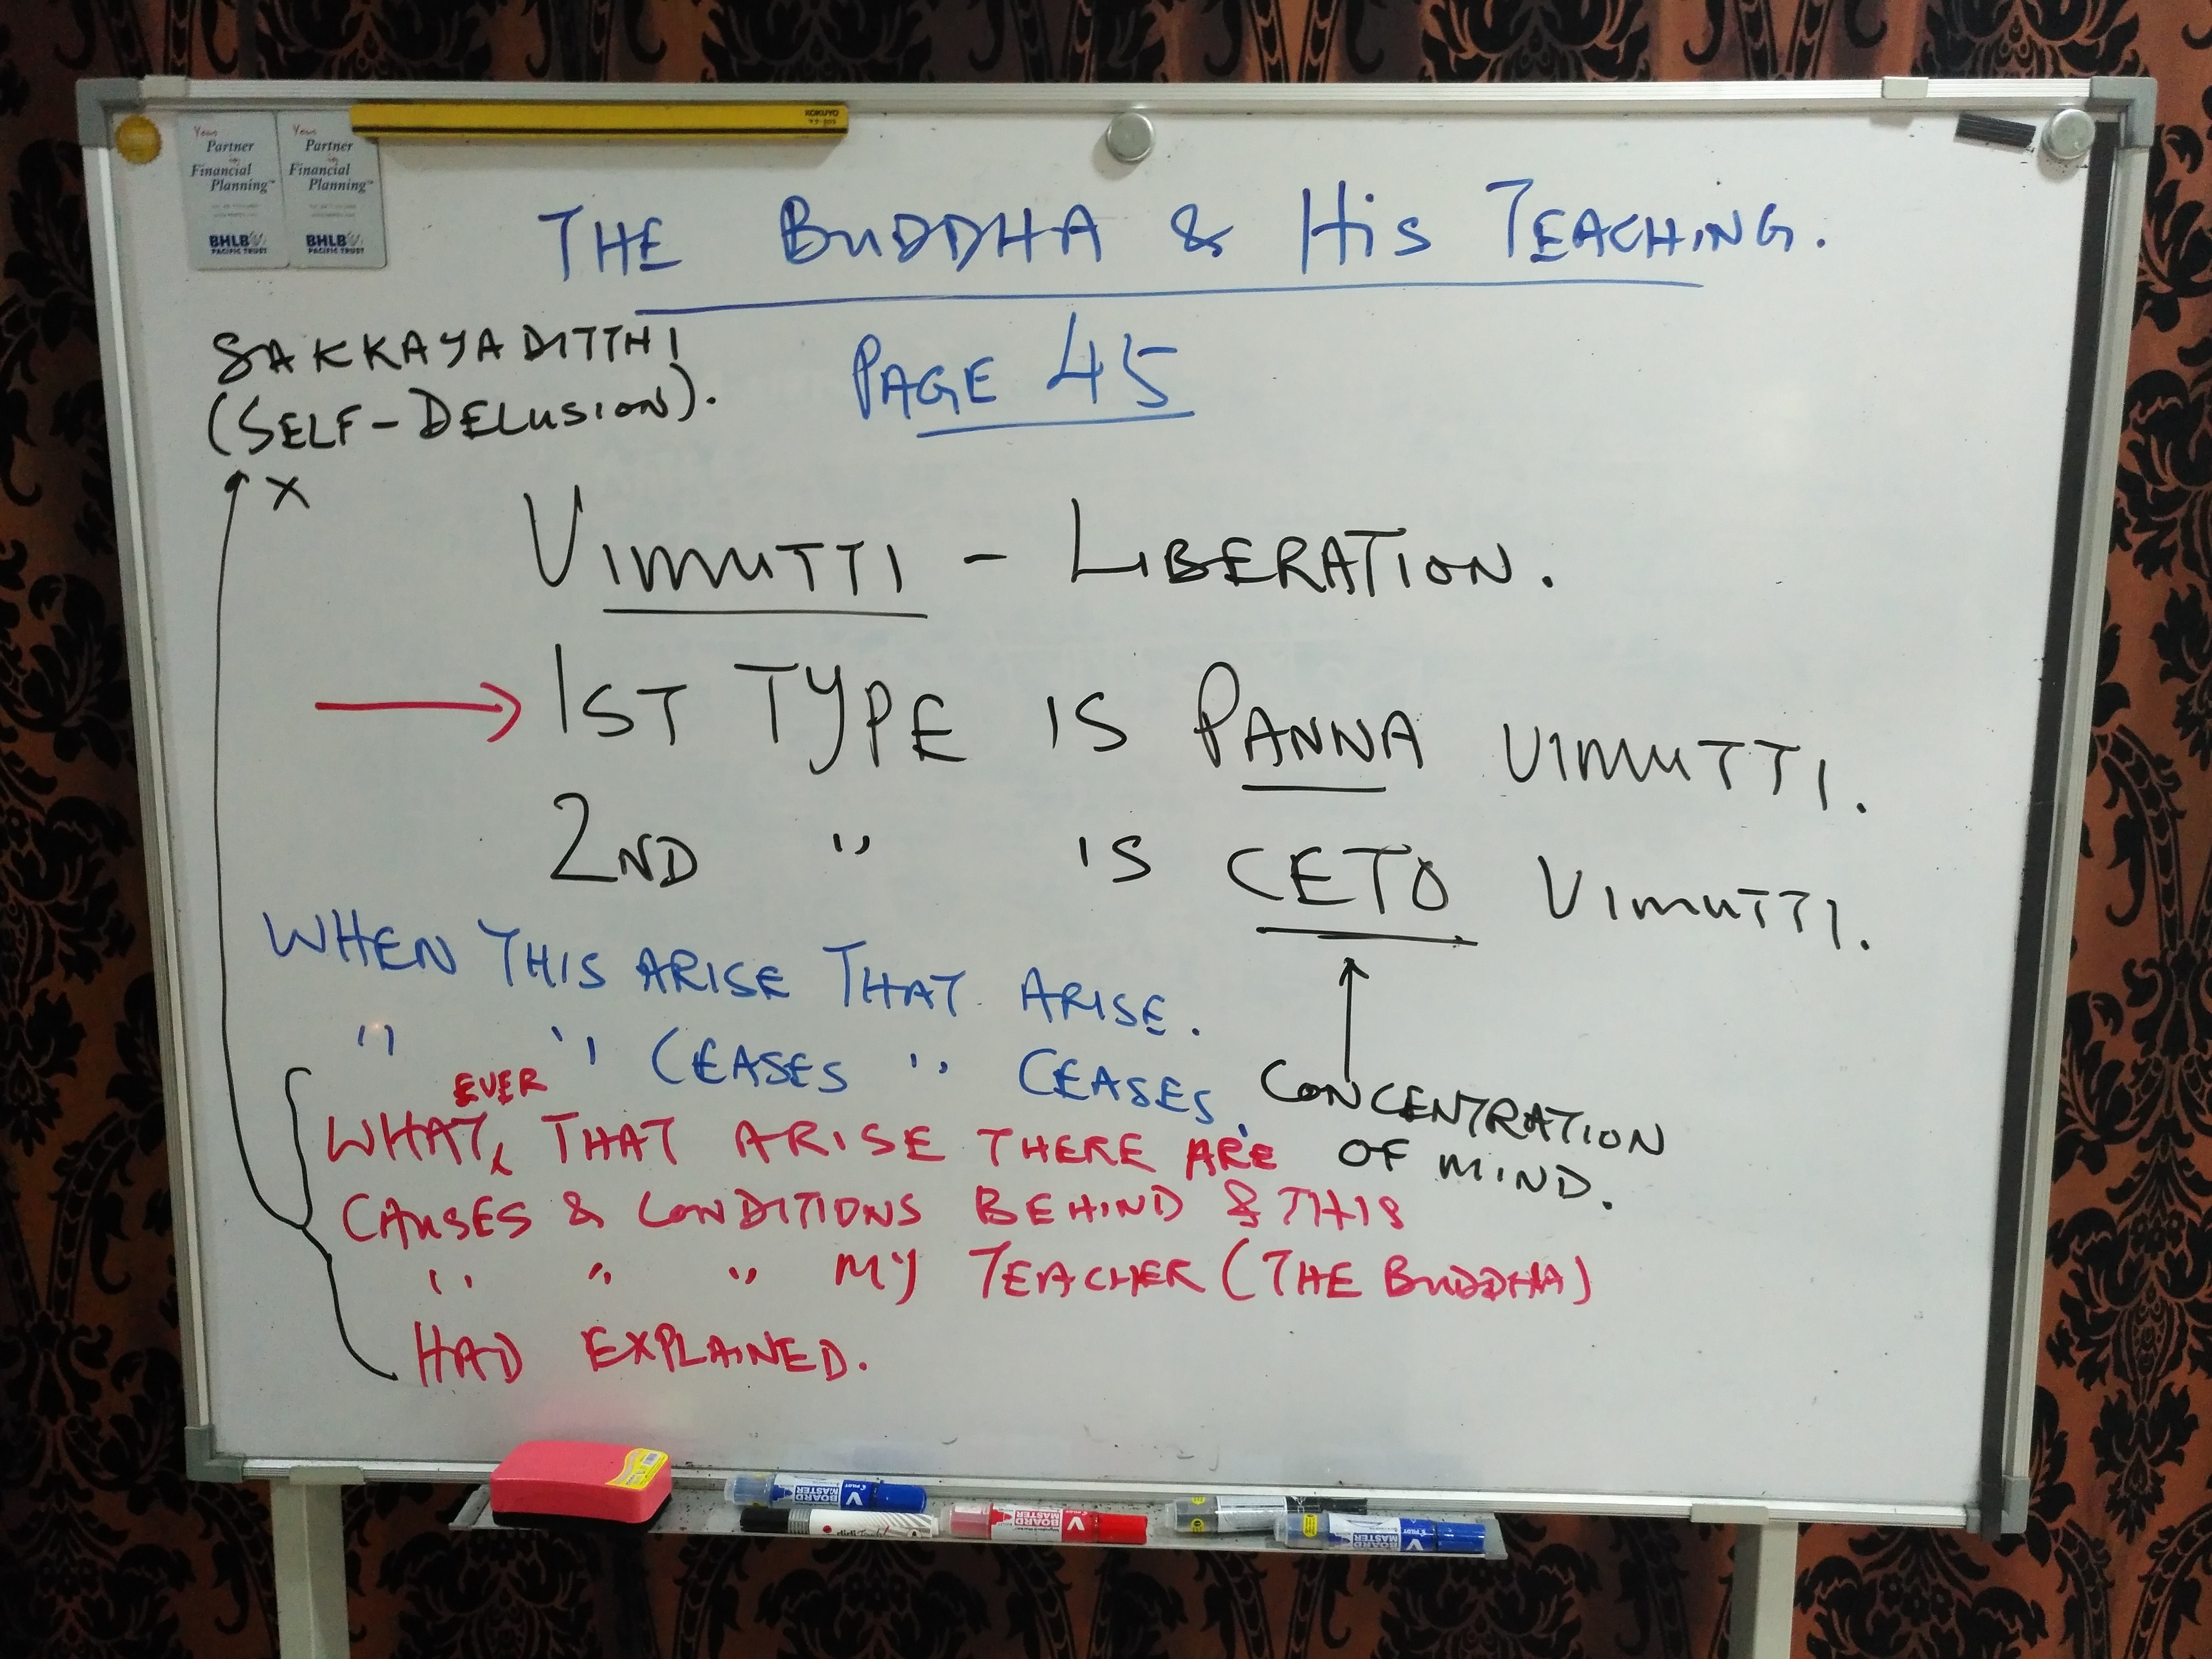 Your
Partner
in
Financial
Planning™
BHLB
PACIFIC TRUST
Your
Partner
in
Financial
Planning™
BHLB
PACIFIC TRUST
KOKUYO
THE BUDDHA & HIS TEACHING.
PAGE 45
SAKKAYADITTHI
(SELF-DELUSION).
X
VIMUTTI - LIBERATION.
1ST TYPE IS PANNA VIMUTTI.
2ND " IS CETO VIMUTTI.
CONCENTRATION
OF MIND.
WHEN THIS ARISE THAT ARISE.
" " CEASES " CEASES.
EVER
WHAT THAT ARISE THERE ARE
CAUSES & CONDITIONS BEHIND & THIS
" " " MY TEACHER (THE BUDDHA)
HAD EXPLAINED.
V BOARD MASTER PILOT
V BOARD MASTER
V BOARD MASTER PILOT